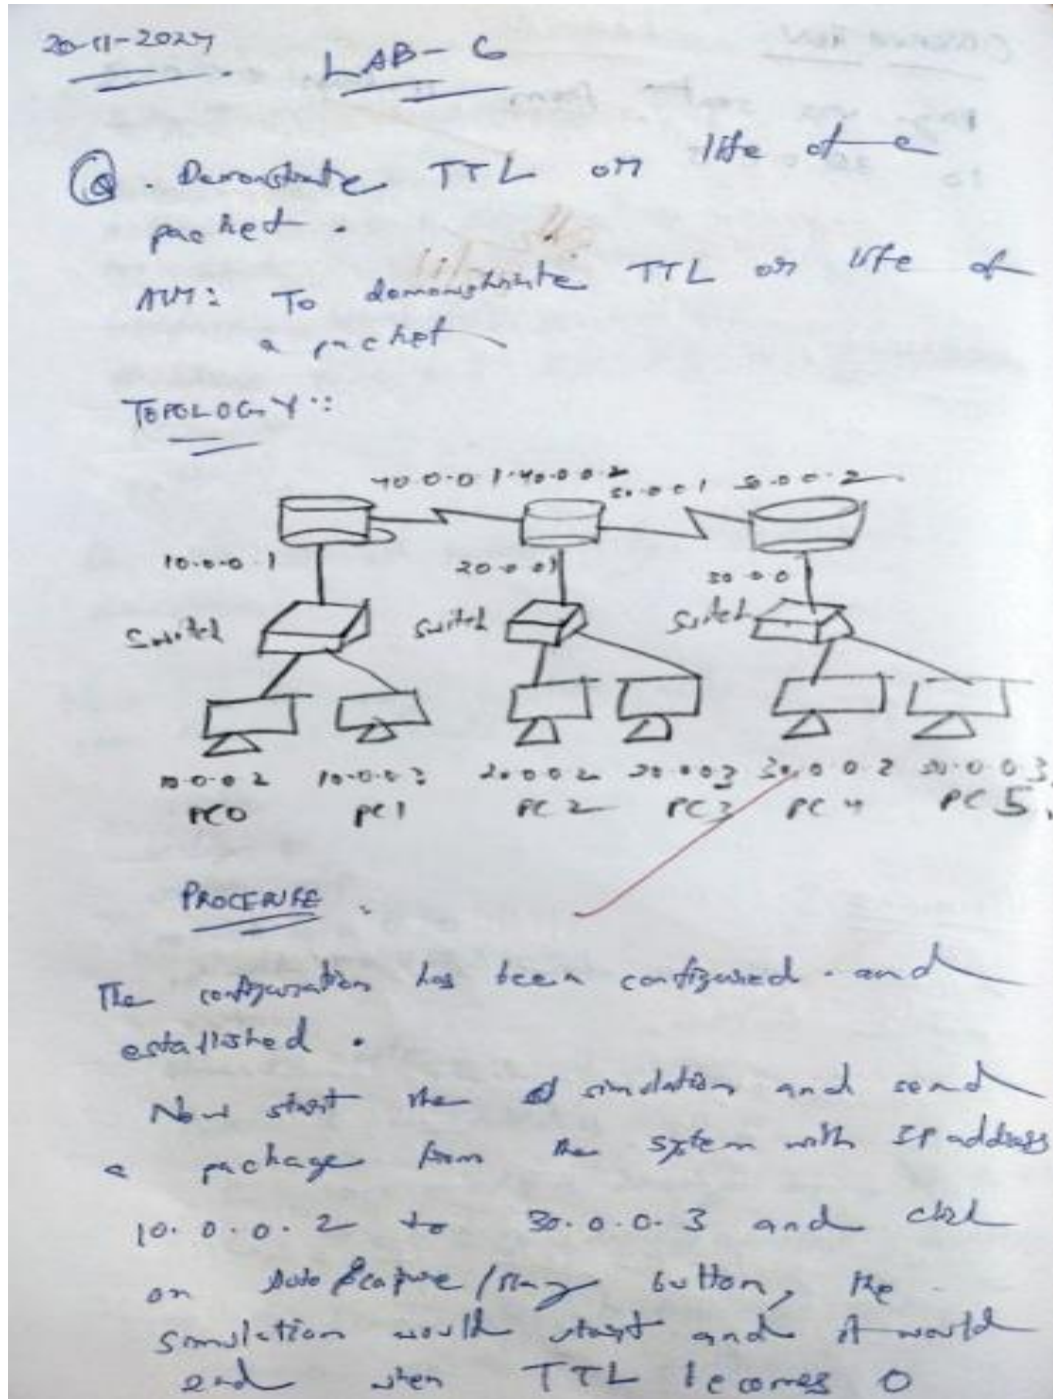 20-11-2024
LAB-6
Q. Demonstrate TTL or life of a
packet.
AIM: To demonstrate TTL or life of
a packet
TOPOLOGY:
40.0.0.1 40.0.0.2 50.0.0.1 50.0.0.2
10.0.0.1 20.0.0.1 30.0.0
Switch Switch Switch
10.0.0.2 10.0.0.3 20.0.0.2 20.0.0.3 30.0.0.2 30.0.0.3
PC0 PC1 PC2 PC3 PC4 PC5
PROCEDURE
The configuration has been configured and
established.
Now start the simulation and send
a package from the system with IP address
10.0.0.2 to 30.0.0.3 and click
on Auto capture/Play button, the
simulation would start and it would
end when TTL becomes 0